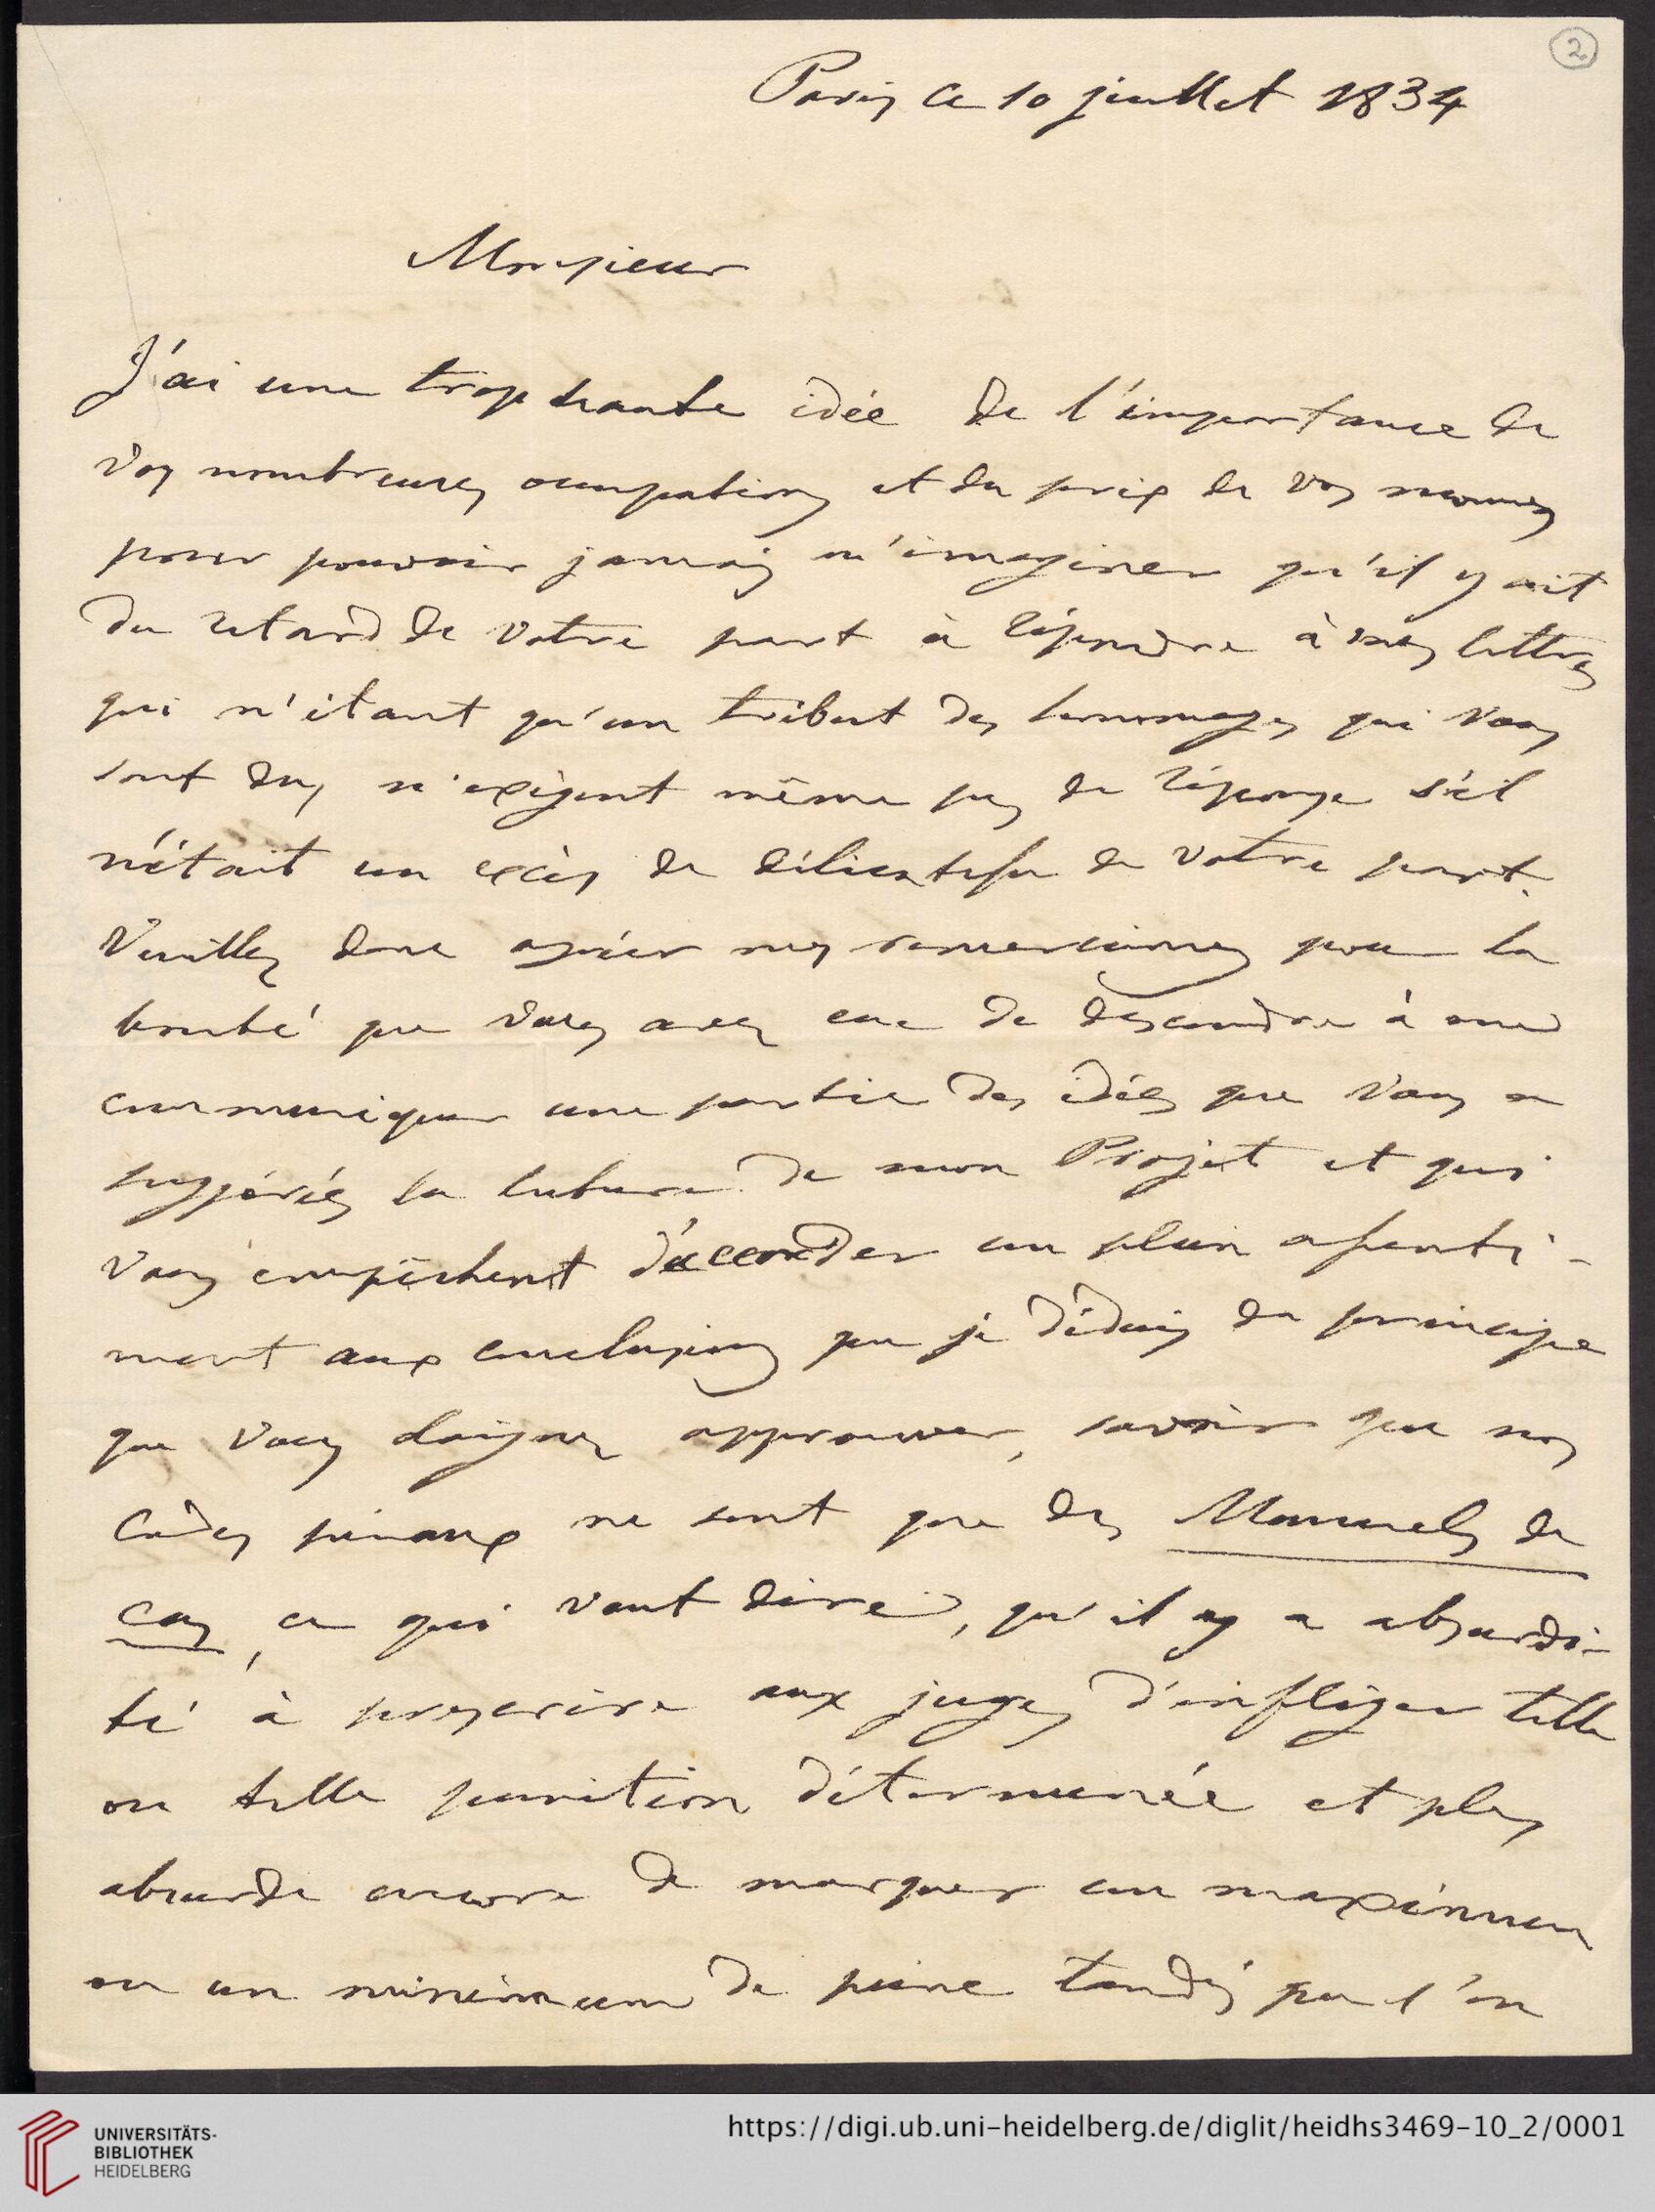 2
Paris ce 10 juillet 1834
Monsieur
J'ai une trop haute idée de l'importance de
vos nombreuses occupations et du prix de vos momens
pour pouvoir jamais m'imaginer qu'il y ait
du retard de votre part à répondre à mes lettres
qui n'étant qu'un tribut des hommages qui vous
sont dus, n'exigent même pas de réponse s'il
n'était un excès de délicatesse de votre part.
Veuillez donc agréer mes remercimens pour la
bonté que vous avez eue de descendre à me
communiquer une partie des idées que vous a
suggérées la lecture de mon Projet et qui
vous empêchent d'accorder un plein assenti-
ment aux conclusions que je déduis du principe
que vous daignez approuver, savoir que nos
Codes pénaux ne sont que des Manuels de
cas, ce qui vaut dire, qu'il y a absurdi-
té à prescrire aux juges d'infliger telle
ou telle punition déterminée et plus
absurde encore de marquer un maximum
ou un minimum de peine tandis que l'on
UNIVERSITÄTS-
BIBLIOTHEK
HEIDELBERG
https://digi.ub.uni-heidelberg.de/diglit/heidhs3469-10_2/0001